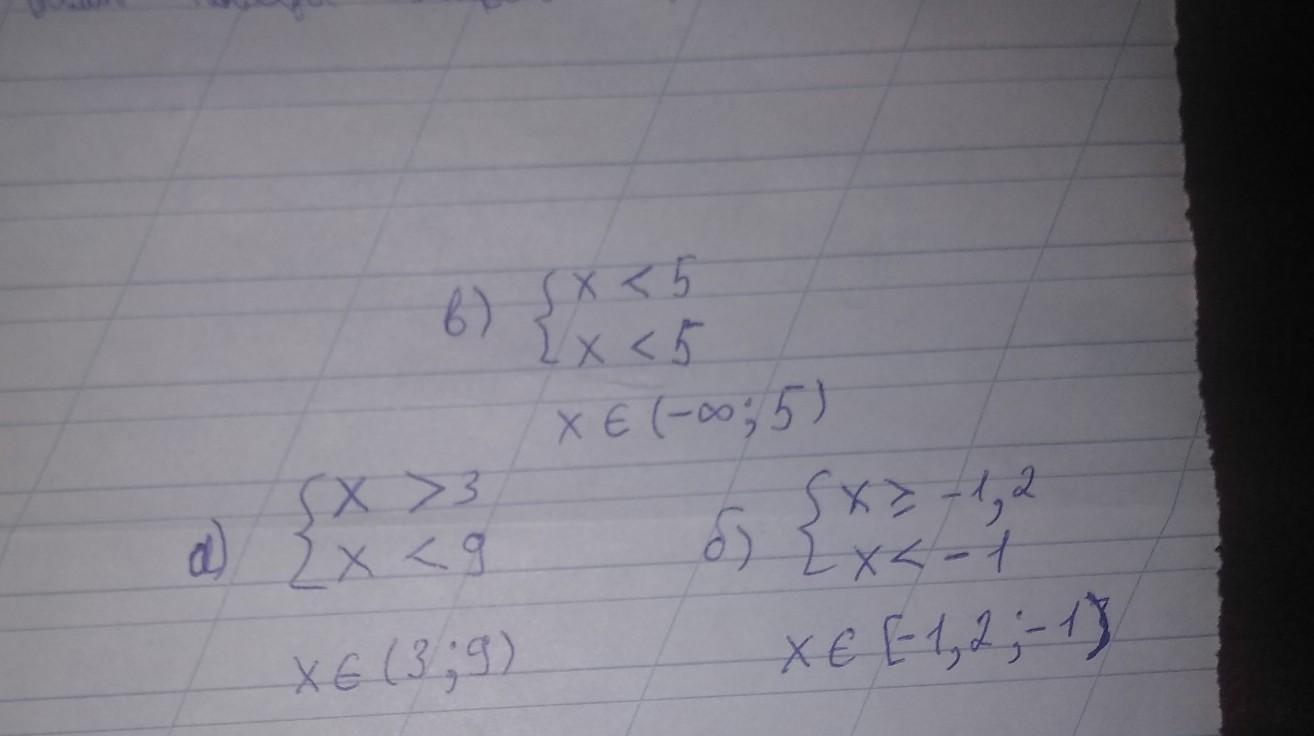 в) { x < 5
x < 5
x ∈ (-∞; 5)
а) { x > 3
x < 9
x ∈ (3; 9)
б) { x ≥ -1,2
x < -1
x ∈ [-1,2; -1)